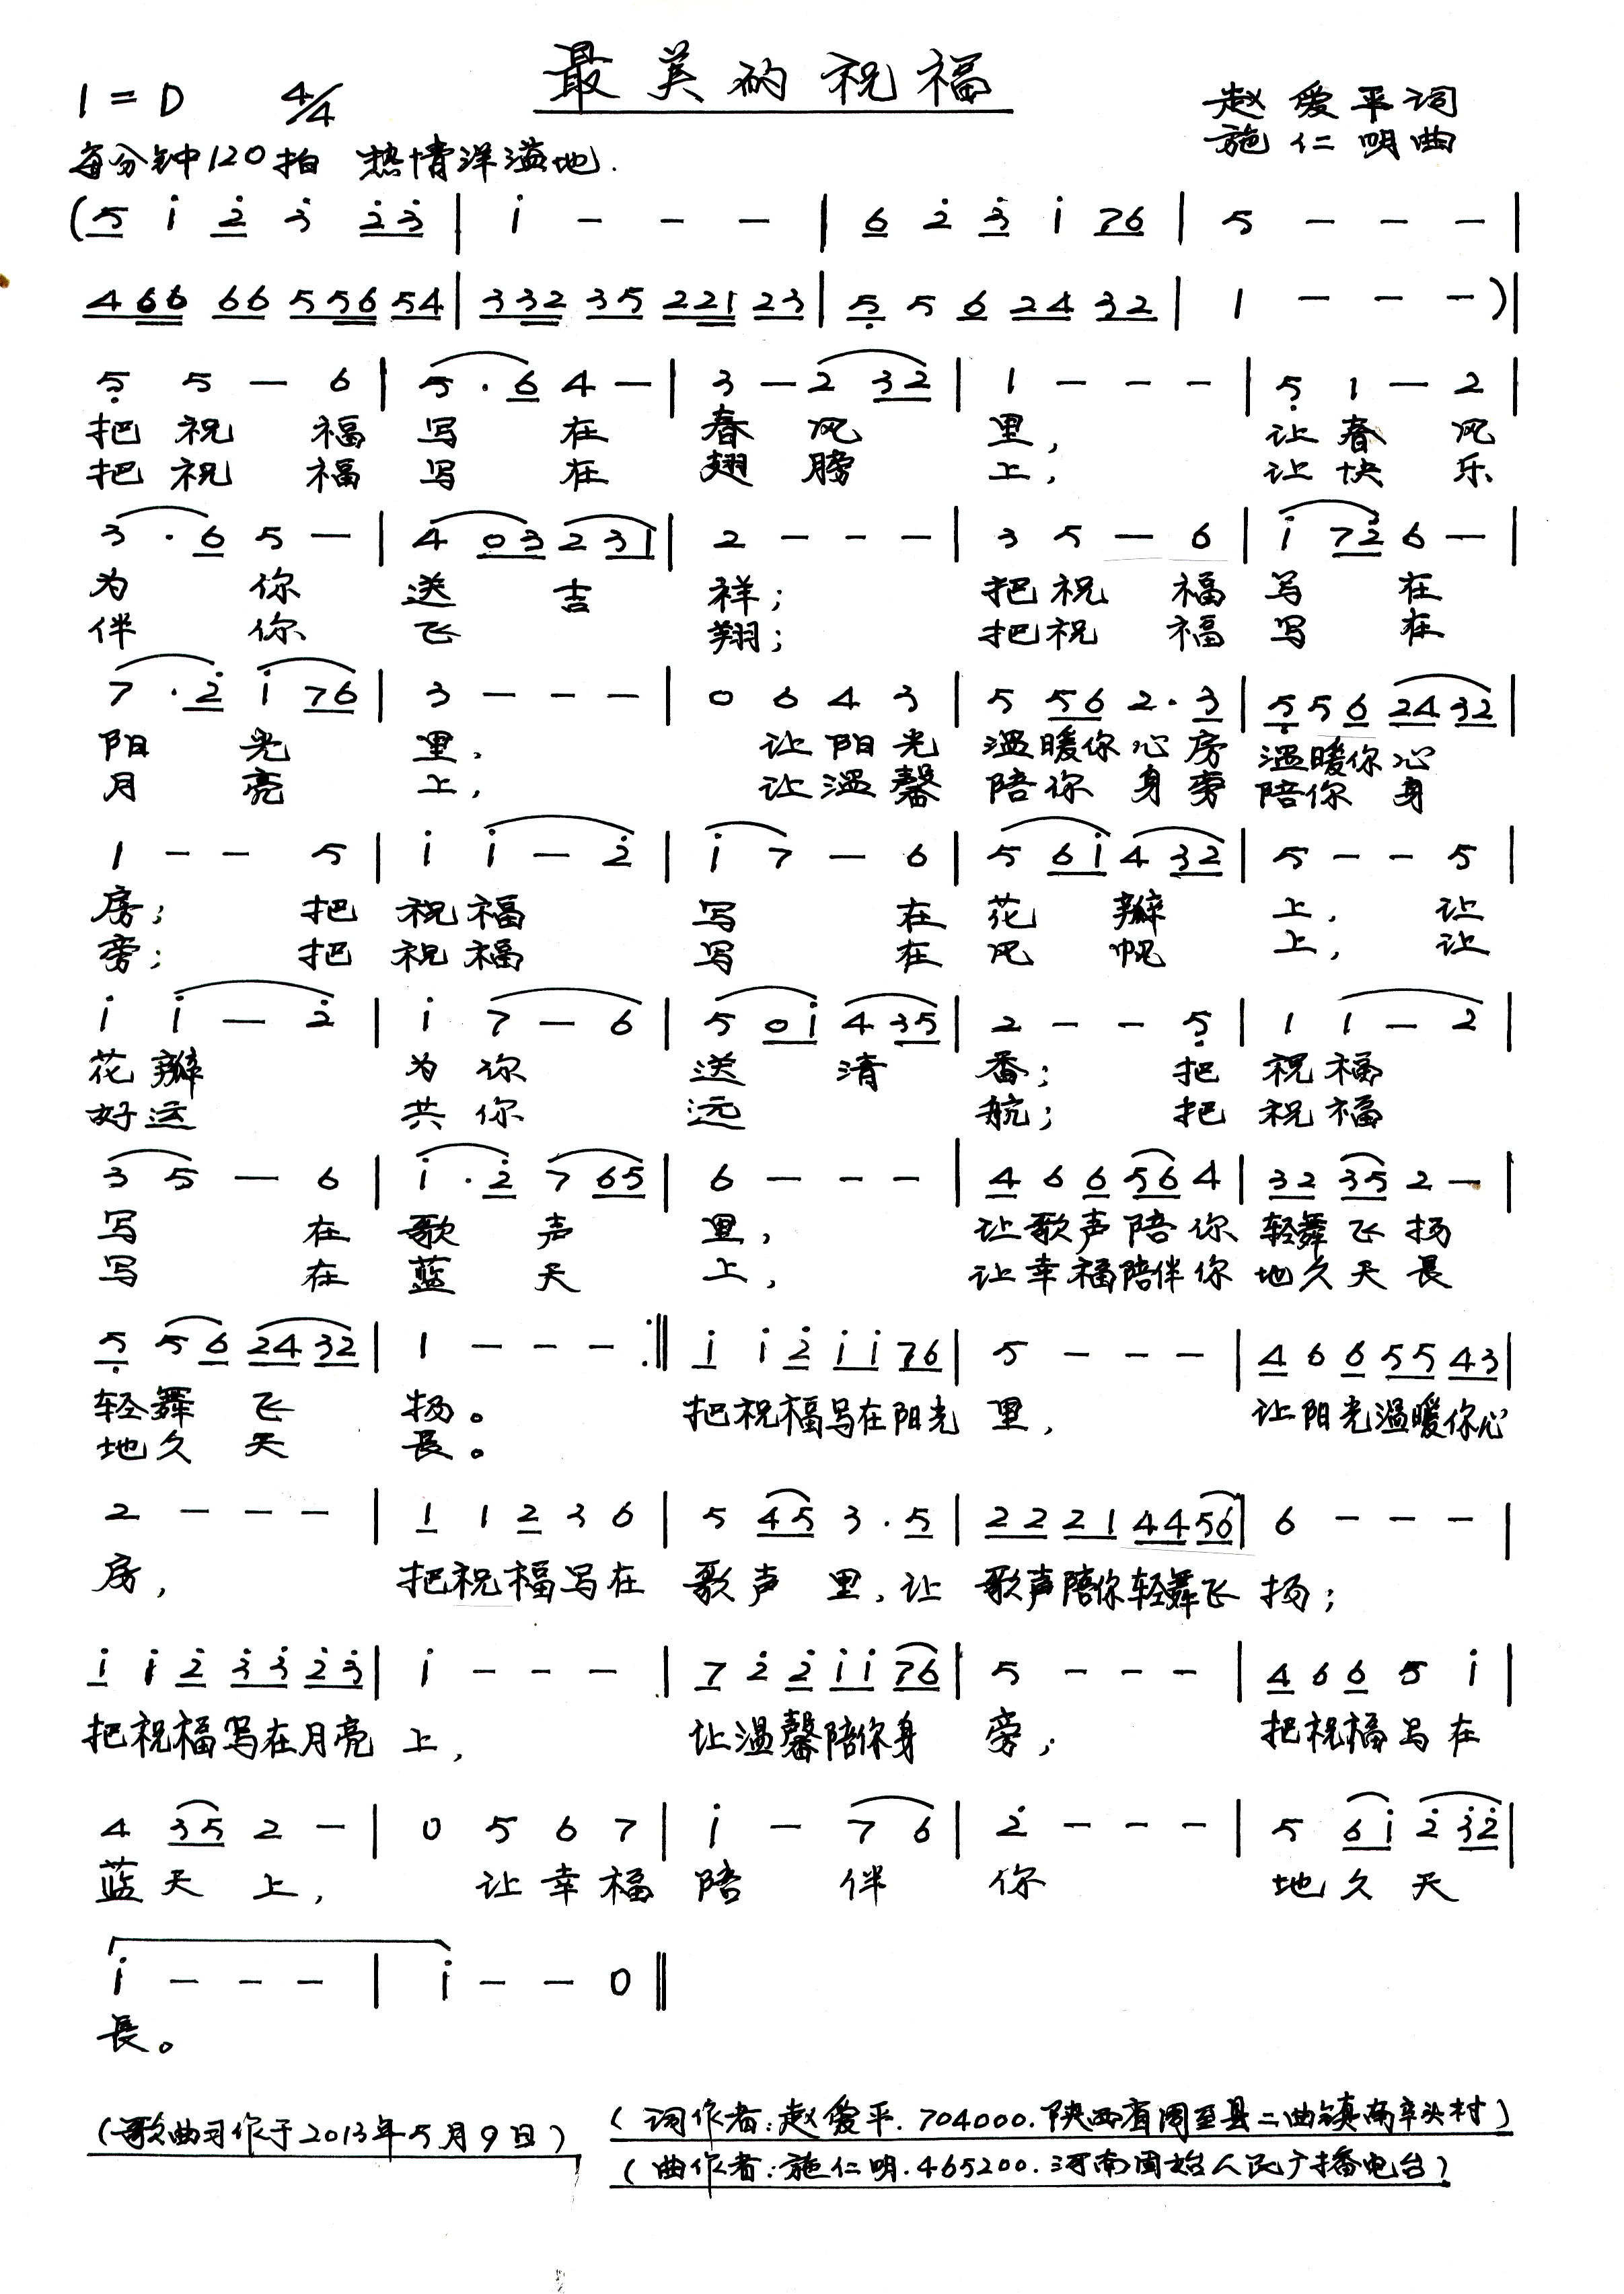 最美的祝福
1=D 4/4
赵爱平词
施仁明曲
每分钟120拍 热情洋溢地.
(5̣ i 2̇ 3̇ 2̇3̇ | i - - - | 6 2̇ 3̇ i 76 | 5 - - - |
466 66 556 54 | 332 35 221 23 | 5̣ 5 6 24 32 | 1 - - -)|
5̣ 5 - 6 | 5 · 6 4 - | 3 - 2 32 | 1 - - - | 5̣ 1 - 2 |
把祝福写在春风里, 让春风
把祝福写在翅膀上, 让快乐
3 · 6 5 - | 4 03 2 31 | 2 - - - | 3 5 - 6 | i 72̇ 6 - |
为你送吉祥; 把祝福写在
伴你飞翔; 把祝福写在
7 · 2̇ i 76 | 3 - - - | 0 6 4 3 | 5 56 2 · 3 | 5̣ 5 6 24 32 |
阳光里, 让阳光温暖你心房温暖你心
月亮上, 让温馨陪你身旁陪你身
1 - - 5 | i i - 2̇ | i 7 - 6 | 5 6i 4 32 | 5 - - 5 |
房; 把祝福写在花瓣上, 让
旁; 把祝福写在风帆上, 让
i i - 2̇ | i 7 - 6 | 5 0i 4 35 | 2 - - 5̣ | 1 1 - 2 |
花瓣为你送清香; 把祝福
好运共你远航; 把祝福
3 5 - 6 | i · 2̇ 7 65 | 6 - - - | 4 6 6 56 4 | 32 35 2 - |
写在歌声里, 让歌声陪你轻舞飞扬
写在蓝天上, 让幸福陪伴你地久天長
5̣ 5 6 24 32 | 1 - - - :‖ i i 2̇ i i 76 | 5 - - - | 4 6 6 55 43 |
轻舞飞扬。 把祝福写在阳光里, 让阳光温暖你心
地久天長。
2 - - - | 1 1 2 3 6 | 5 45 3 · 5 | 22 21 44 56 | 6 - - - |
房, 把祝福写在歌声里,让歌声陪你轻舞飞扬;
i i 2̇ 3̇3̇ 2̇3̇ | i - - - | 7 2̇ 2̇ i i 76 | 5 - - - | 4 6 6 5 i |
把祝福写在月亮上, 让温馨陪你身旁, 把祝福写在
4 35 2 - | 0 5 6 7 | i - 7 6 | 2̇ - - - | 5 6i 2̇ 3̇2̇ |
蓝天上, 让幸福陪伴你地久天
i - - - | i - - 0 ‖
長。
(歌曲习作于2013年5月9日)
(词作者:赵爱平.704000.陕西省周至县二曲镇南辛头村)
(曲作者:施仁明.465200.河南固始人民广播电台)